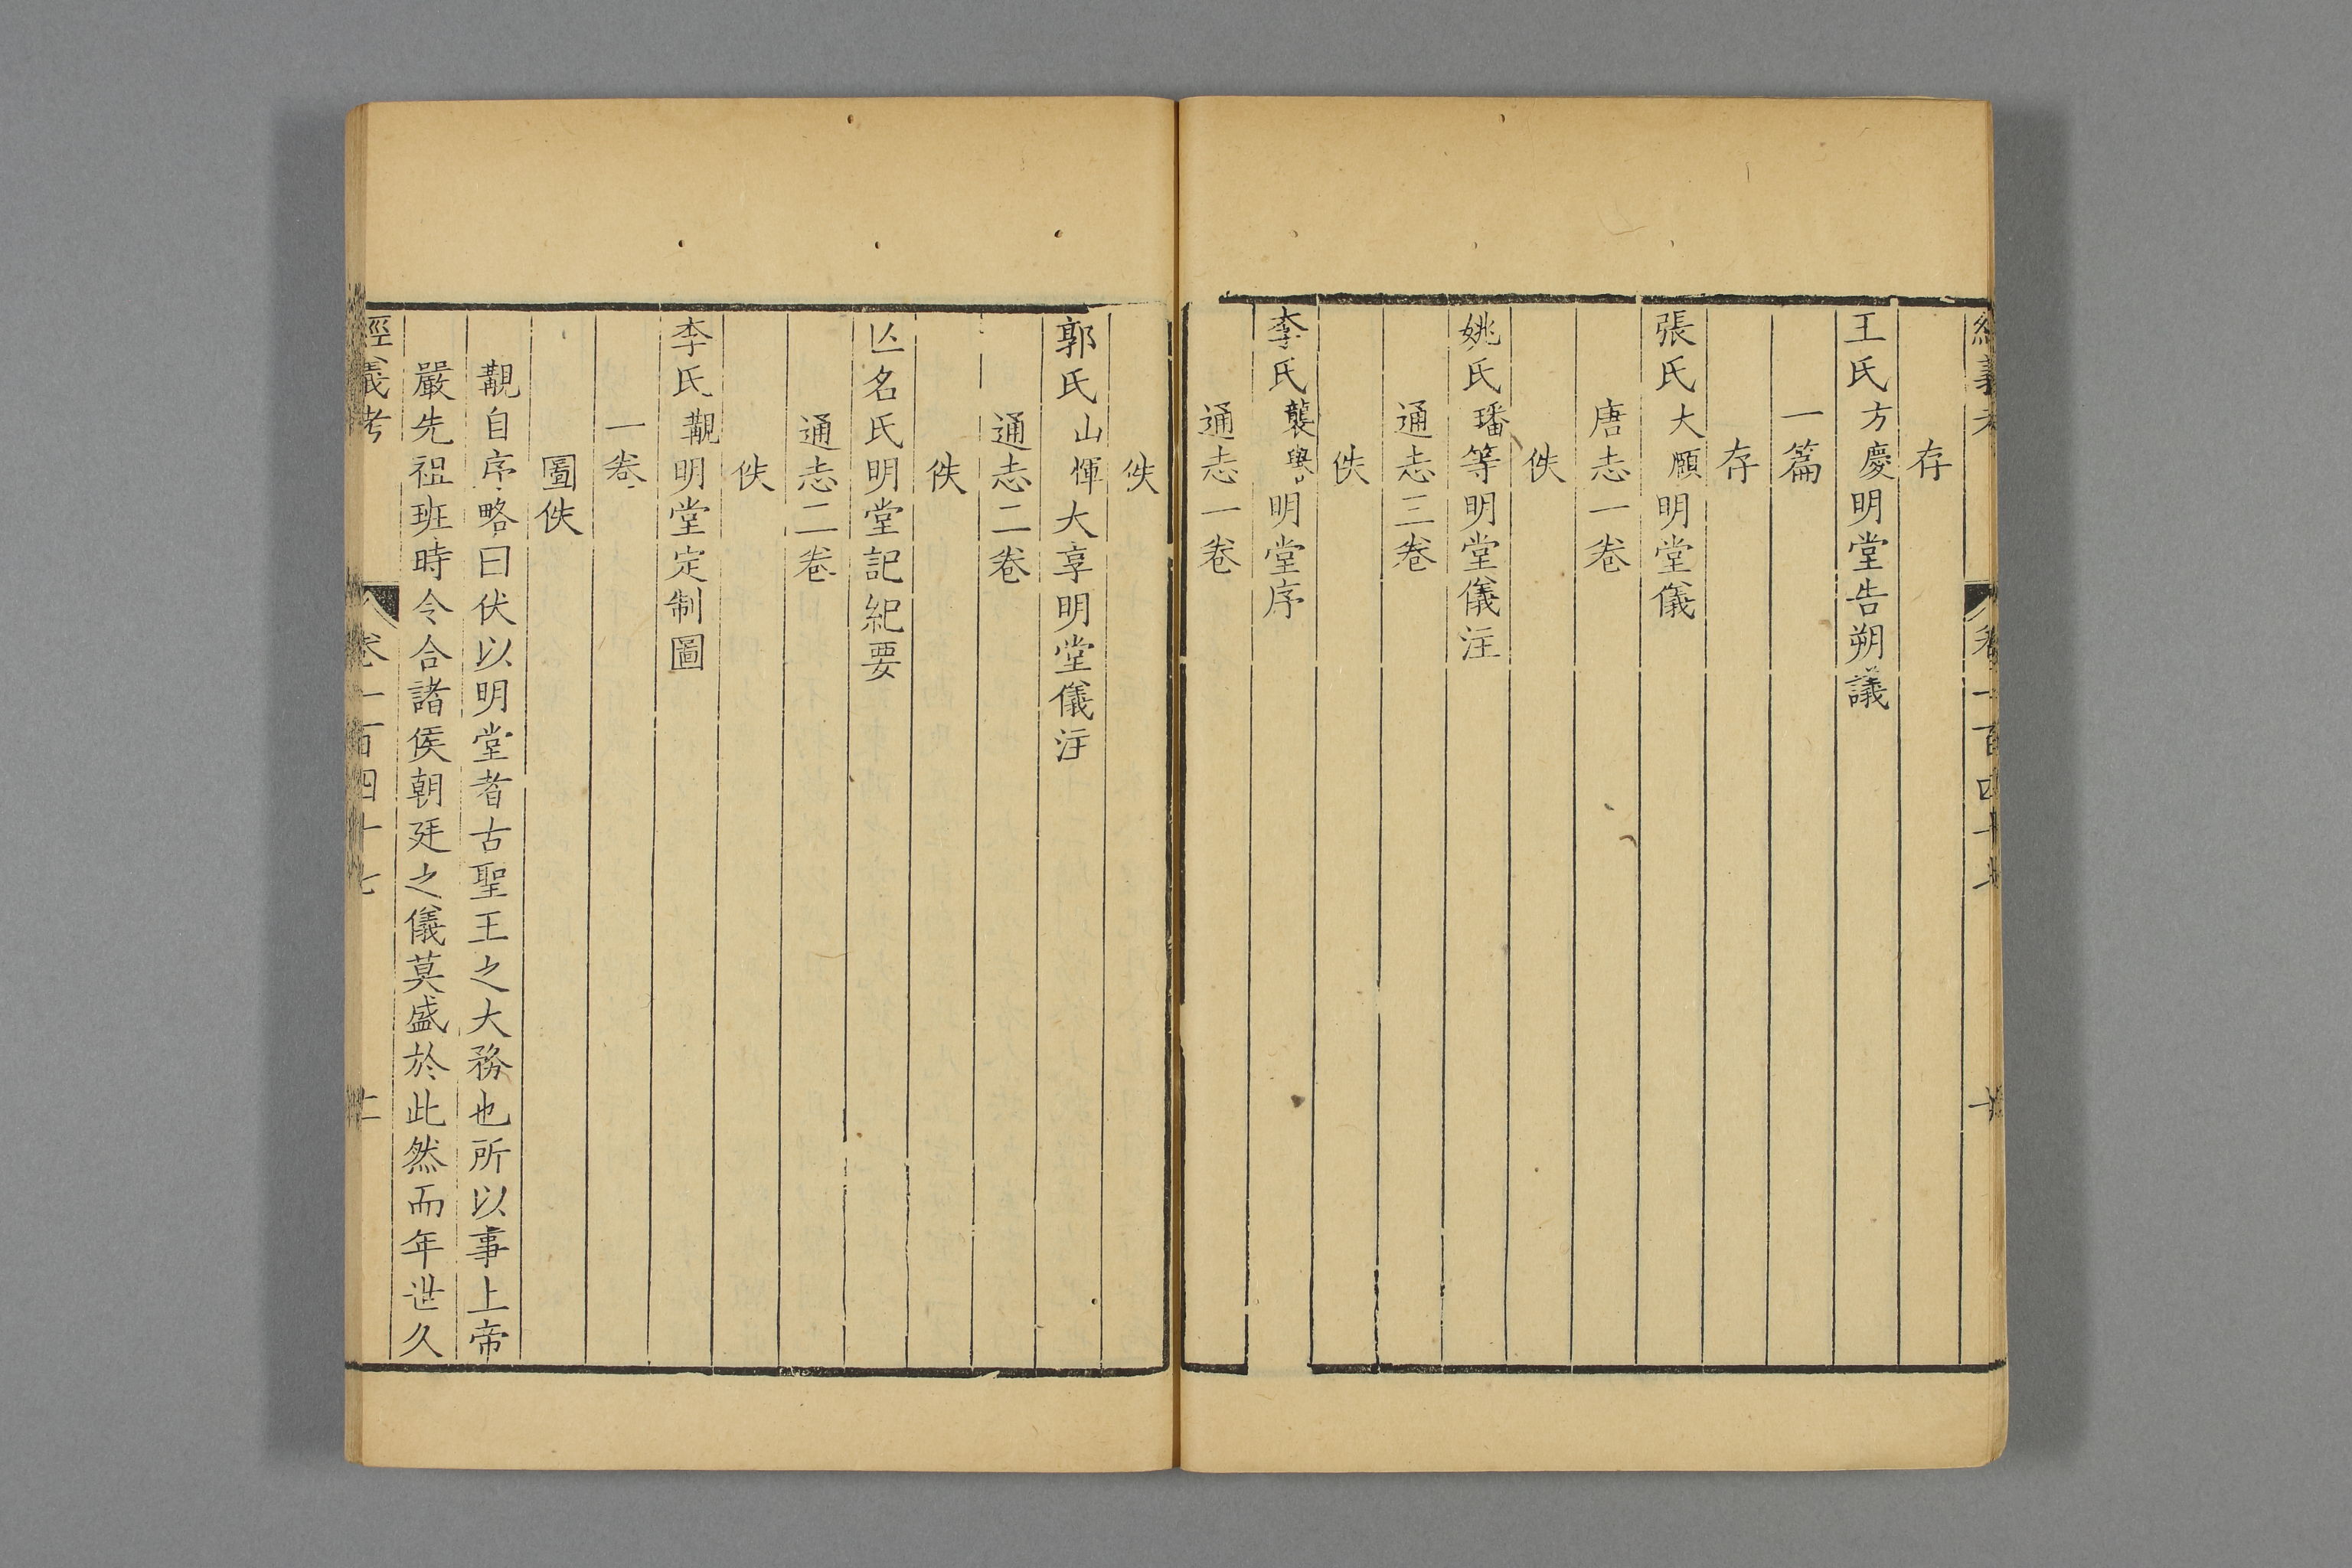 經義考 卷一百四十七 十
存
王氏方慶明堂告朔議
一篇
存
張氏大頤明堂儀
唐志一卷
佚
姚氏璠等明堂儀注
通志三卷
佚
李氏襲譽明堂序
通志一卷
佚
郭氏山惲大享明堂儀注
通志二卷
佚
亾名氏明堂記紀要
通志二卷
佚
李氏覯明堂定制圖
一卷
圖佚
覯自序略曰伏以明堂者古聖王之大務也所以事上帝
嚴先祖班時令合諸侯朝廷之儀莫盛於此然而年世久
經義考 卷一百四十七